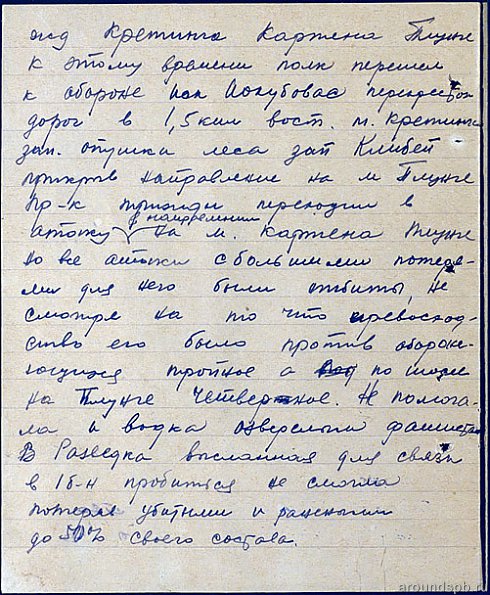 жд Кретинга Картена Плунге
к этому времени полк перешел
к обороне иск Йокубовас перекресток
дорог в 1,5 км вост. м. Кретинга
зап. опушка леса зап
прикрыв направление на м Плунге
Пр-к трижды переходил в
атаку в направлении на м. Картена Плунге
но все атаки с большими потеря-
ми для него были отбиты, не
смотря на то что превосход-
ство его было против обороня-
ющихся тройное а под по шоссе
на Плунге четверное. Не помога-
ла и водка озверелым фашистам
В Разведка высланная для связи
в 1б-н пробиться не смогла
потеряв убитыми и ранеными
до 50% своего состава.
aroundspb.r